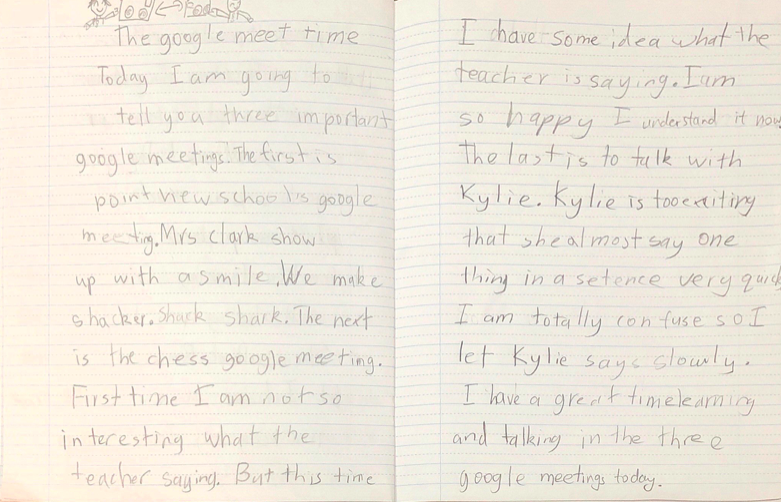 The google meet time
Today I am going to
tell you three important
google meetings. The first is
point view school's google
meeting. Mrs clark show
up with a smile. We make
shacker. Shack shark. The next
is the chess google meeting.
First time I am not so
interesting what the
teacher saying. But this time
I have some idea what the
teacher is saying. I am
so happy I understand it now
The last is to talk with
Kylie. Kylie is too exiting
that she almost say one
thing in a setence very quick
I am totally confuse so I
let Kylie says slowly.
I have a great time learning
and talking in the three
google meetings today.